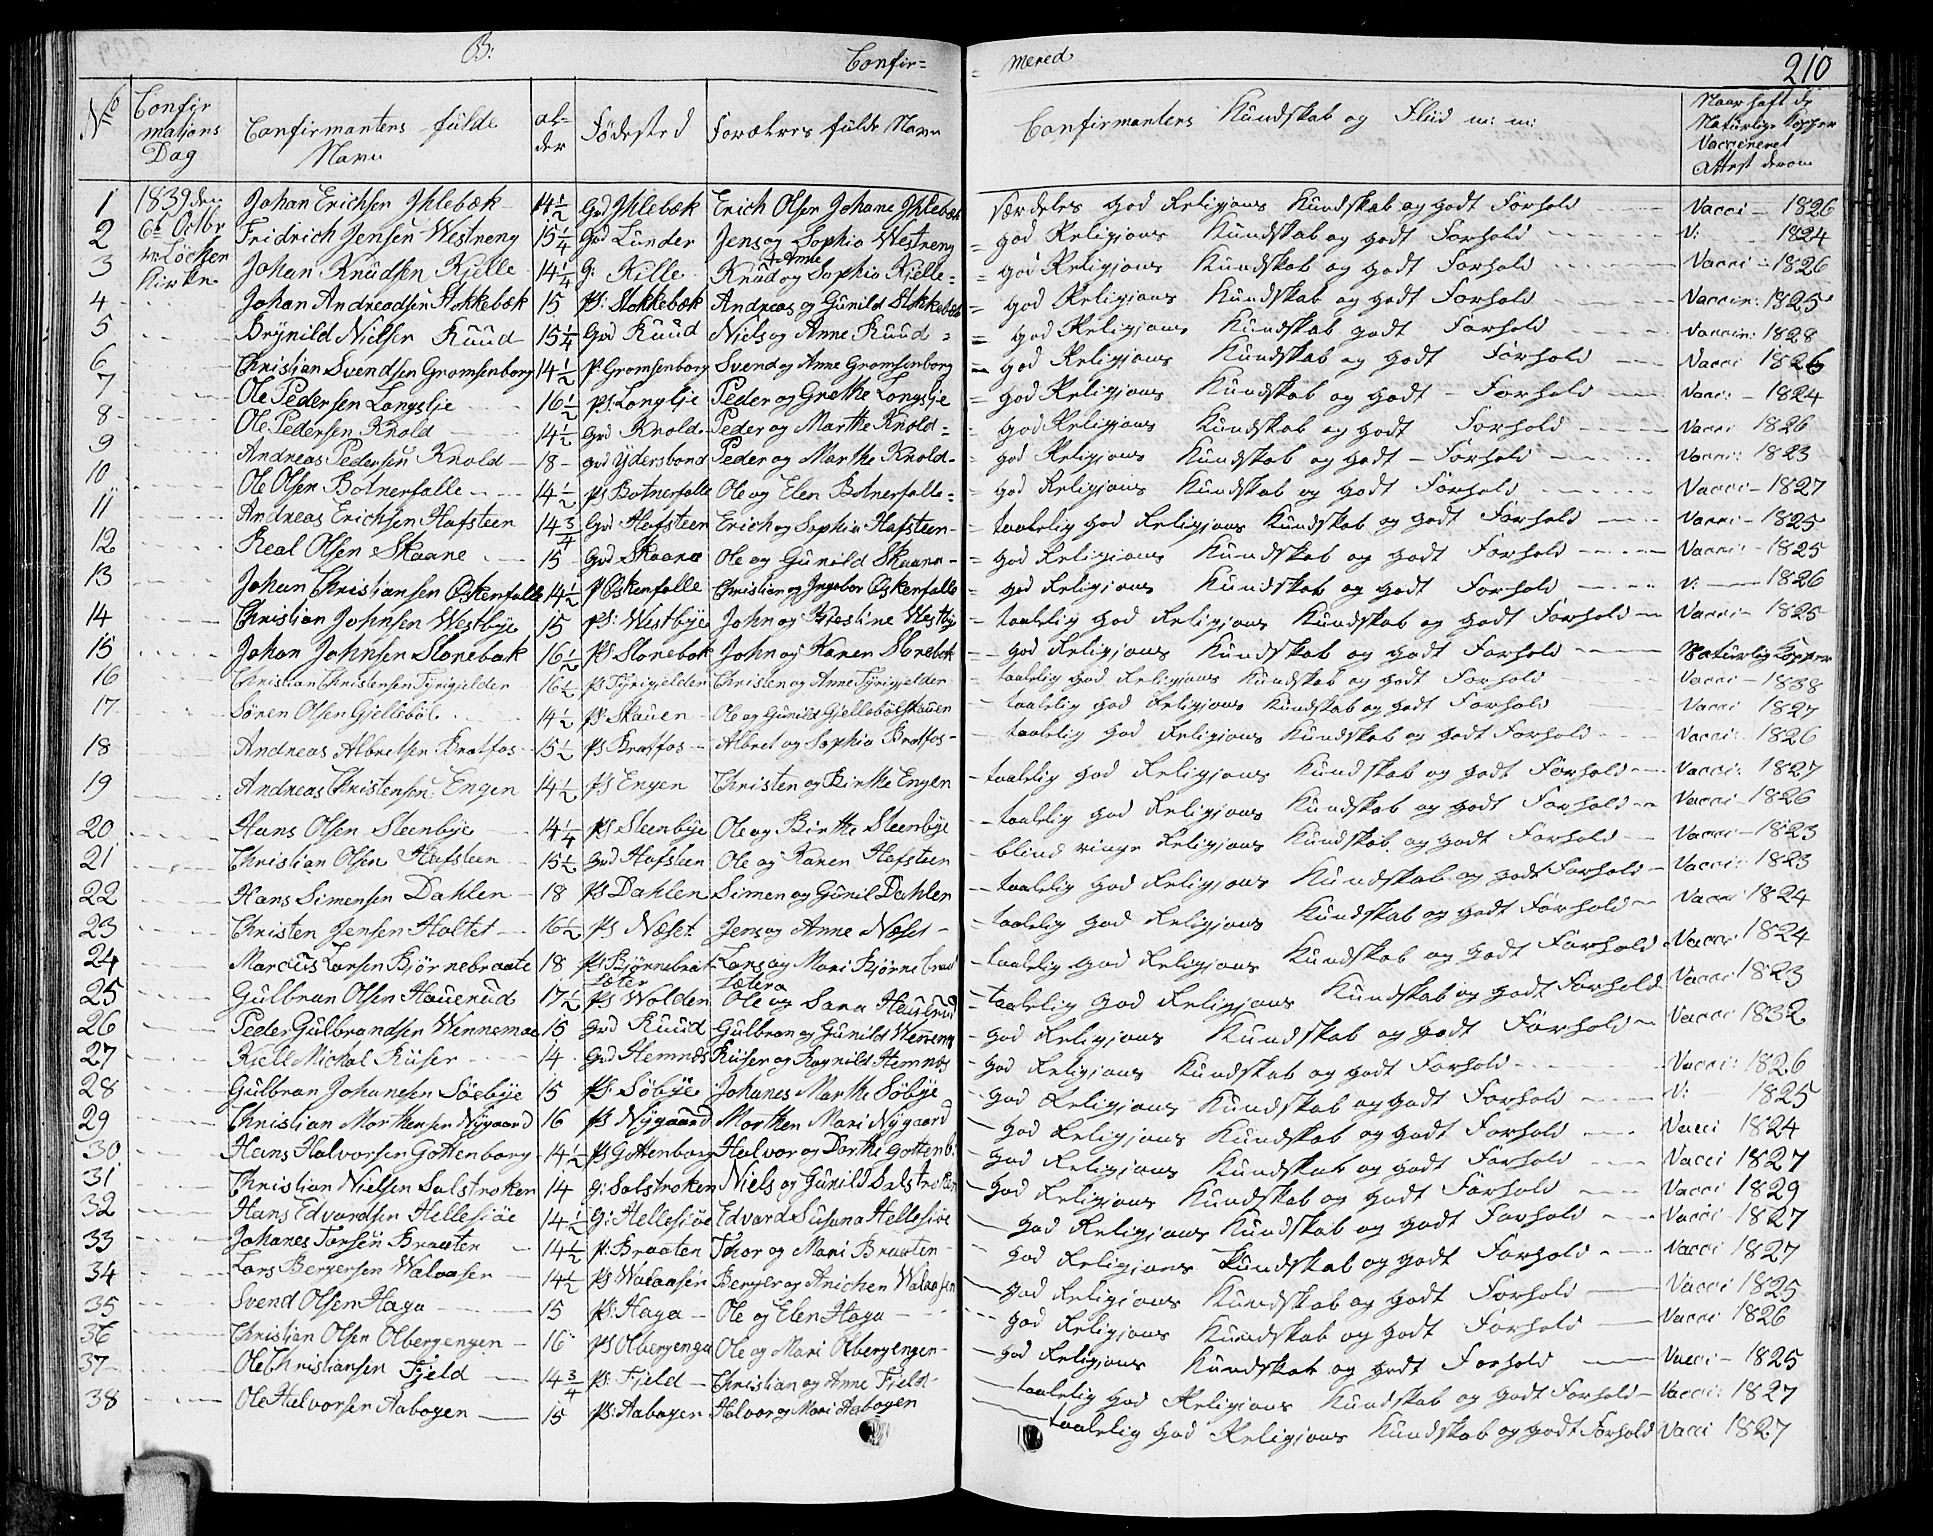 B. Confir= = mered 210
No Confir mations Dag Confirmantens fulde Navn al- der Fødested Forældres fulde Navn Confirmantens Kundskab og Fliid m: m: Naar haft de Naturlige Kopper Vaccineret Attest derom
1 1839 den Johan Erichsen Ihlebæk 14 1/2 Grd Ihlebæk Erich Olsen Johane Ihlebæk særdeles god Religions Kundskab og godt Forhold Vacci - 1826
2 6t Octbr Fridrich Jensen Westreng 15 1/4 Grd Lunder Jens og Sophia Westreng = god Religions Kundskab og godt Forhold V: 1824
3 Kirke Johan Knudsen Kjelle 14 1/4 G: Kille Knud og + Anne Sophia Kjelle = god Religions Kundskab og godt Forhold Vacci - 1826
4 Johan Andreadsen Stokkebæk 15 Ps: Stokkebæk Andreas og Gunild Stokkebæk = god Religions Kundskab og godt Forhold Vaccin: 1825
5 Brynild Nielsen Ruud 15 1/4 Grd Ruud Niels og Anne Ruud = god Religions Kundskab godt Forhold Vaccin: 1828
6 Christian Svendsen Gromsenborg 14 1/2 P: Gromsenborg Svend og Anne Gromsenborg = god Religions Kundskab og godt Forhold Vacci 1826
7 Ole Pedersen Longslje 16 1/2 Ps: Longlje Peder og Grethe Longslje = god Religions Kundskab og godt - Forhold Vacci - 1824
8 Ole Pedersen Knold 14 1/2 Grd Knold Peder og Marthe Knold = god Religions Kundskab og godt Forhold Vacci 1826
9 Andreas Pedersen Knold 18 Grd Ydersbond Peder og Marthe Knold = god Religions Kundskab og godt - Forhold Vacci: 1823
10 Ole Olsen Botnerfalle 14 1/2 Ps Botnerfalle Ole og Elen Botnerfalle = god Religions Kundskab og godt Forhold Vacci - 1827
11 Andreas Erichsen Hafsteen 14 3/4 Grd Hafsteen Erich og Sophia Hafsteen = taalelig god Religions Kundskab og godt Forhold Vacci - 1825
12 Real Olsen Skaane 15 Grd Skaane Ole og Gunild Skaane = god Religions Kundskab og godt Forhold Vacci: - 1825
13 Johan Christiansen Øskenfalle 14 1/2 P Øskenfalle Christian og Ingebor Øskenfalle = god Religions Kundskab og godt Forhold V: 1826
14 Christian Johnsen Westbye 15 Ps: Westbye John og Kiestine Westby = taalelig god Religions Kundskab og godt Forhold Vacci - 1825
15 Johan Johnsen Slorebæk 16 1/2 Ps Slorebæk John og Karen Slorebæk = god Religions Kundskab og godt Forhold Naturlig Kopper
16 Christian Christensen Tyrigjelder 16 1/2 Ps Tyrigjelder Christen og Anne Tyrigjelder taalelig god Religions Kundskab og godt Forhold Vacci - 1838
17 Søren Olsen Gjellebøl 14 1/2 Ps Skauen Ole og Gunild Gjellebølskauen taalelig god Religions Kundskab og godt Forhold Vacci 1827
18 Andreas Albretsen Bratfos 15 1/2 Ps Bratfos Albret og Sophia Bratfos taalelig god Religions Kundskab og godt Forhold Vacci: 1826
19 Andreas Christensen Engen 14 1/2 Ps Engen Christen og Birthe Engen taalelig god Religions Kundskab og godt Forhold Vacci: 1827
20 Hans Olsen Steenbye 14 1/4 Ps Steenbye Ole og Birthe Steenbye taalelig god Religions Kundskab og godt Forhold Vacci - 1826
21 Christian Olsen Hafsteen 15 1/2 Grd Hafsteen Ole og Karen Hafsteen blind ringe Religions Kundskab og godt Forhold Vacci - 1823
22 Hans Simensen Dahlen 18 Ps Dahlen Simen og Gunil Dahlen taalelig god Religions Kundskab og godt Forhold Vacci: 1823
23 Christen Jensen Holtet 16 1/2 Ps Næset Jens og Anne Næset taalelig god Religions Kundskab og godt Forhold Vacci 1824
24 Marcus Larsen Bjørnebraate 18 Ps Bjørnebrat Lars og Mari Bjørnebraat taalelig god Religions Kundskab og godt Forhold Vacci 1824
25 Gulbran Olsen Hauerud 17 1/2 Ps Wolden Ole og Sara Hauerud taalelig god Religions Kundskab og godt Forhold Vacci 1823
26 Peder Gulbrandsen Wennemoe 15 Grd Ruud Gulbran og Gunild Wennemo god Religions Kundskab og godt Forhold Vacci 1832
27 Kiell Michal Riiser 14 Grd Hemnæs Riiser og Ragnild Hemnæs god Religions Kundskab og godt Forhold Vacci: 1826
28 Gulbran Johanesen Söebÿe 15 Ps: Söbÿe Johanes Marthe Söbÿe god Religions Kundskab og godt Forhold V: 1825
29 Christian Morthensen Nÿgaard 16 Ps Nÿgaard Morthen Mari Nÿgaard god Religions Kundskab og godt Forhold Vacci 1824
30 Hans Halvorsen Gottenborg 14 1/2 Ps Gottenborg Halvor og Dorthe Gottenb: god Religions Kundskab og godt Forhold Vacci 1827
31 Christian Nielsen Solstroken 14 G: Solstroken Niels og Gunild Solstroken god Religions Kundskab og godt Forhold Vacci 1829
32 Hans Edvardsen Hellesiöe 14 1/2 G: Hellesiöe Edvard Susana Hellesiöe god Religions Kundskab og godt Forhold Vacci 1827
33 Johanes Torsen Braaten 14 1/2 P: Braaten Thor og Mari Braaten god Religions Kundskab og godt Forhold Vacci 1827
34 Lars Bergersen Walaasen 14 1/2 Ps Walaasen Berger og Anichen Walaasen god Religions Kundskab og godt Forhold Vacci 1825
35 Svend Olsen Haga 15 Ps: Haga Ole og Elen Haga god Religions Kundskab og godt Forhold Vacci 1826
36 Christian Olsen Olbergengen 16 Ps Olbergenge Ole og Mari Olbergengen god Religions Kundskab og godt Forhold Vacci - 1825
37 Ole Christiansen Fjeld 14 3/4 Ps: Fjeld Christian og Anne Fjeld taalelig god Religions Kundskab og godt Forhold Vacci: 1827
38 Ole Halvorsen Aabogen 15 Ps: Aabogen Halvor og Mari Aabogen taalelig god Religions Kundskab og godt Forhold Vacci 1827